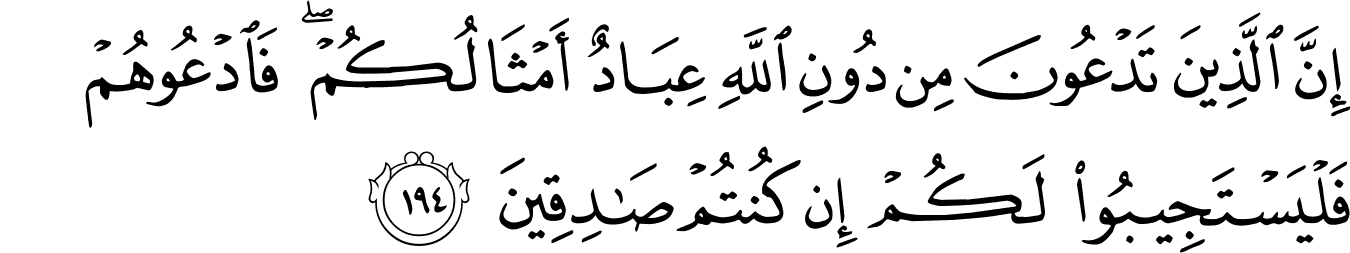 إِنَّ ٱلَّذِينَ تَدْعُونَ مِن دُونِ ٱللَّهِ عِبَادٌ أَمْثَالُكُمْ ۖ فَٱدْعُوهُمْ
فَلْيَسْتَجِيبُوا۟ لَكُمْ إِن كُنتُمْ صَـٰدِقِينَ ١٩٤